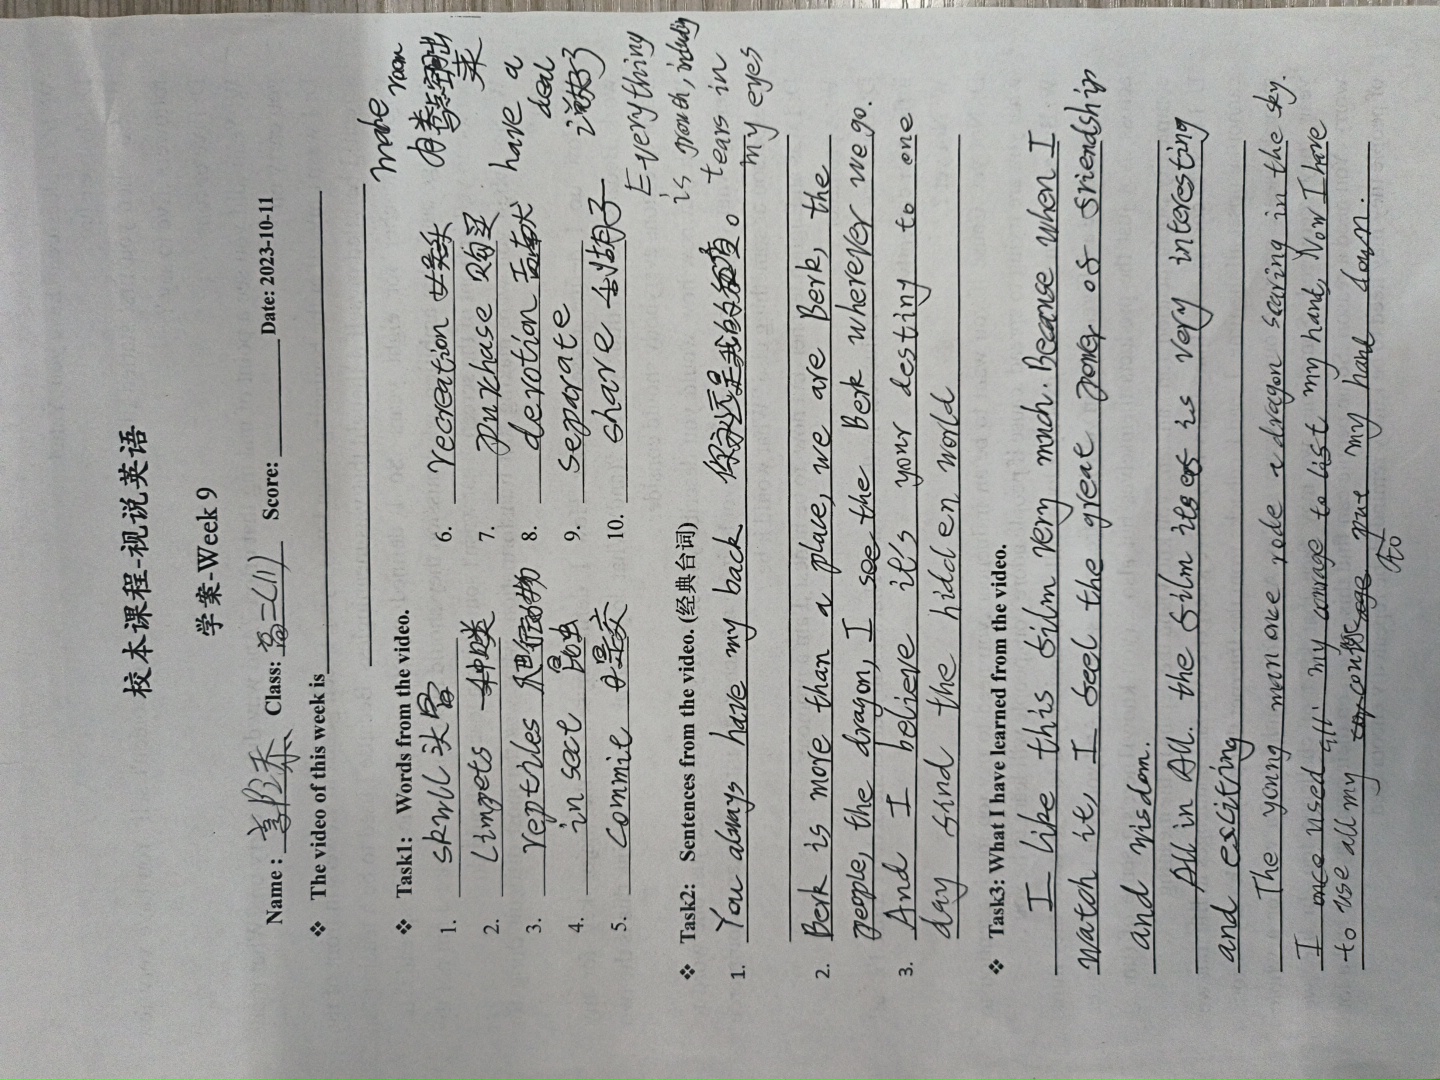 校本课程-视说英语
学案-Week 9
Name : Class: 高二(11) Score: Date: 2023-10-11
❖ The video of this week is
❖ Task1: Words from the video.
1. skull 头骨 6. recreation 娱乐
2. limpets 7. purchase 购买
3. reptiles 爬行动物 8. devotion 贡献
4. insect 昆虫 9. separate
5. commit 10. share
make room
have a deal
Everything
is growth, including
tears in
my eyes
❖ Task2: Sentences from the video. (经典台词)
1. You always have my back 你永远是我的后盾。
2. Berk is more than a place, we are Berk, the
people, the dragon, I see the Berk wherever we go.
3. And I believe it's your destiny to one
day find the hidden world
❖ Task3: What I have learned from the video.
I like this film very much. Because when I
watch it, I feel the great power of friendship
and wisdom.
All in All. the film itself is very interesting
and exciting
The young man once rode a dragon soaring in the sky.
I once used all my courage to list my hand, Now I have
to use all my courage to put my hand down.